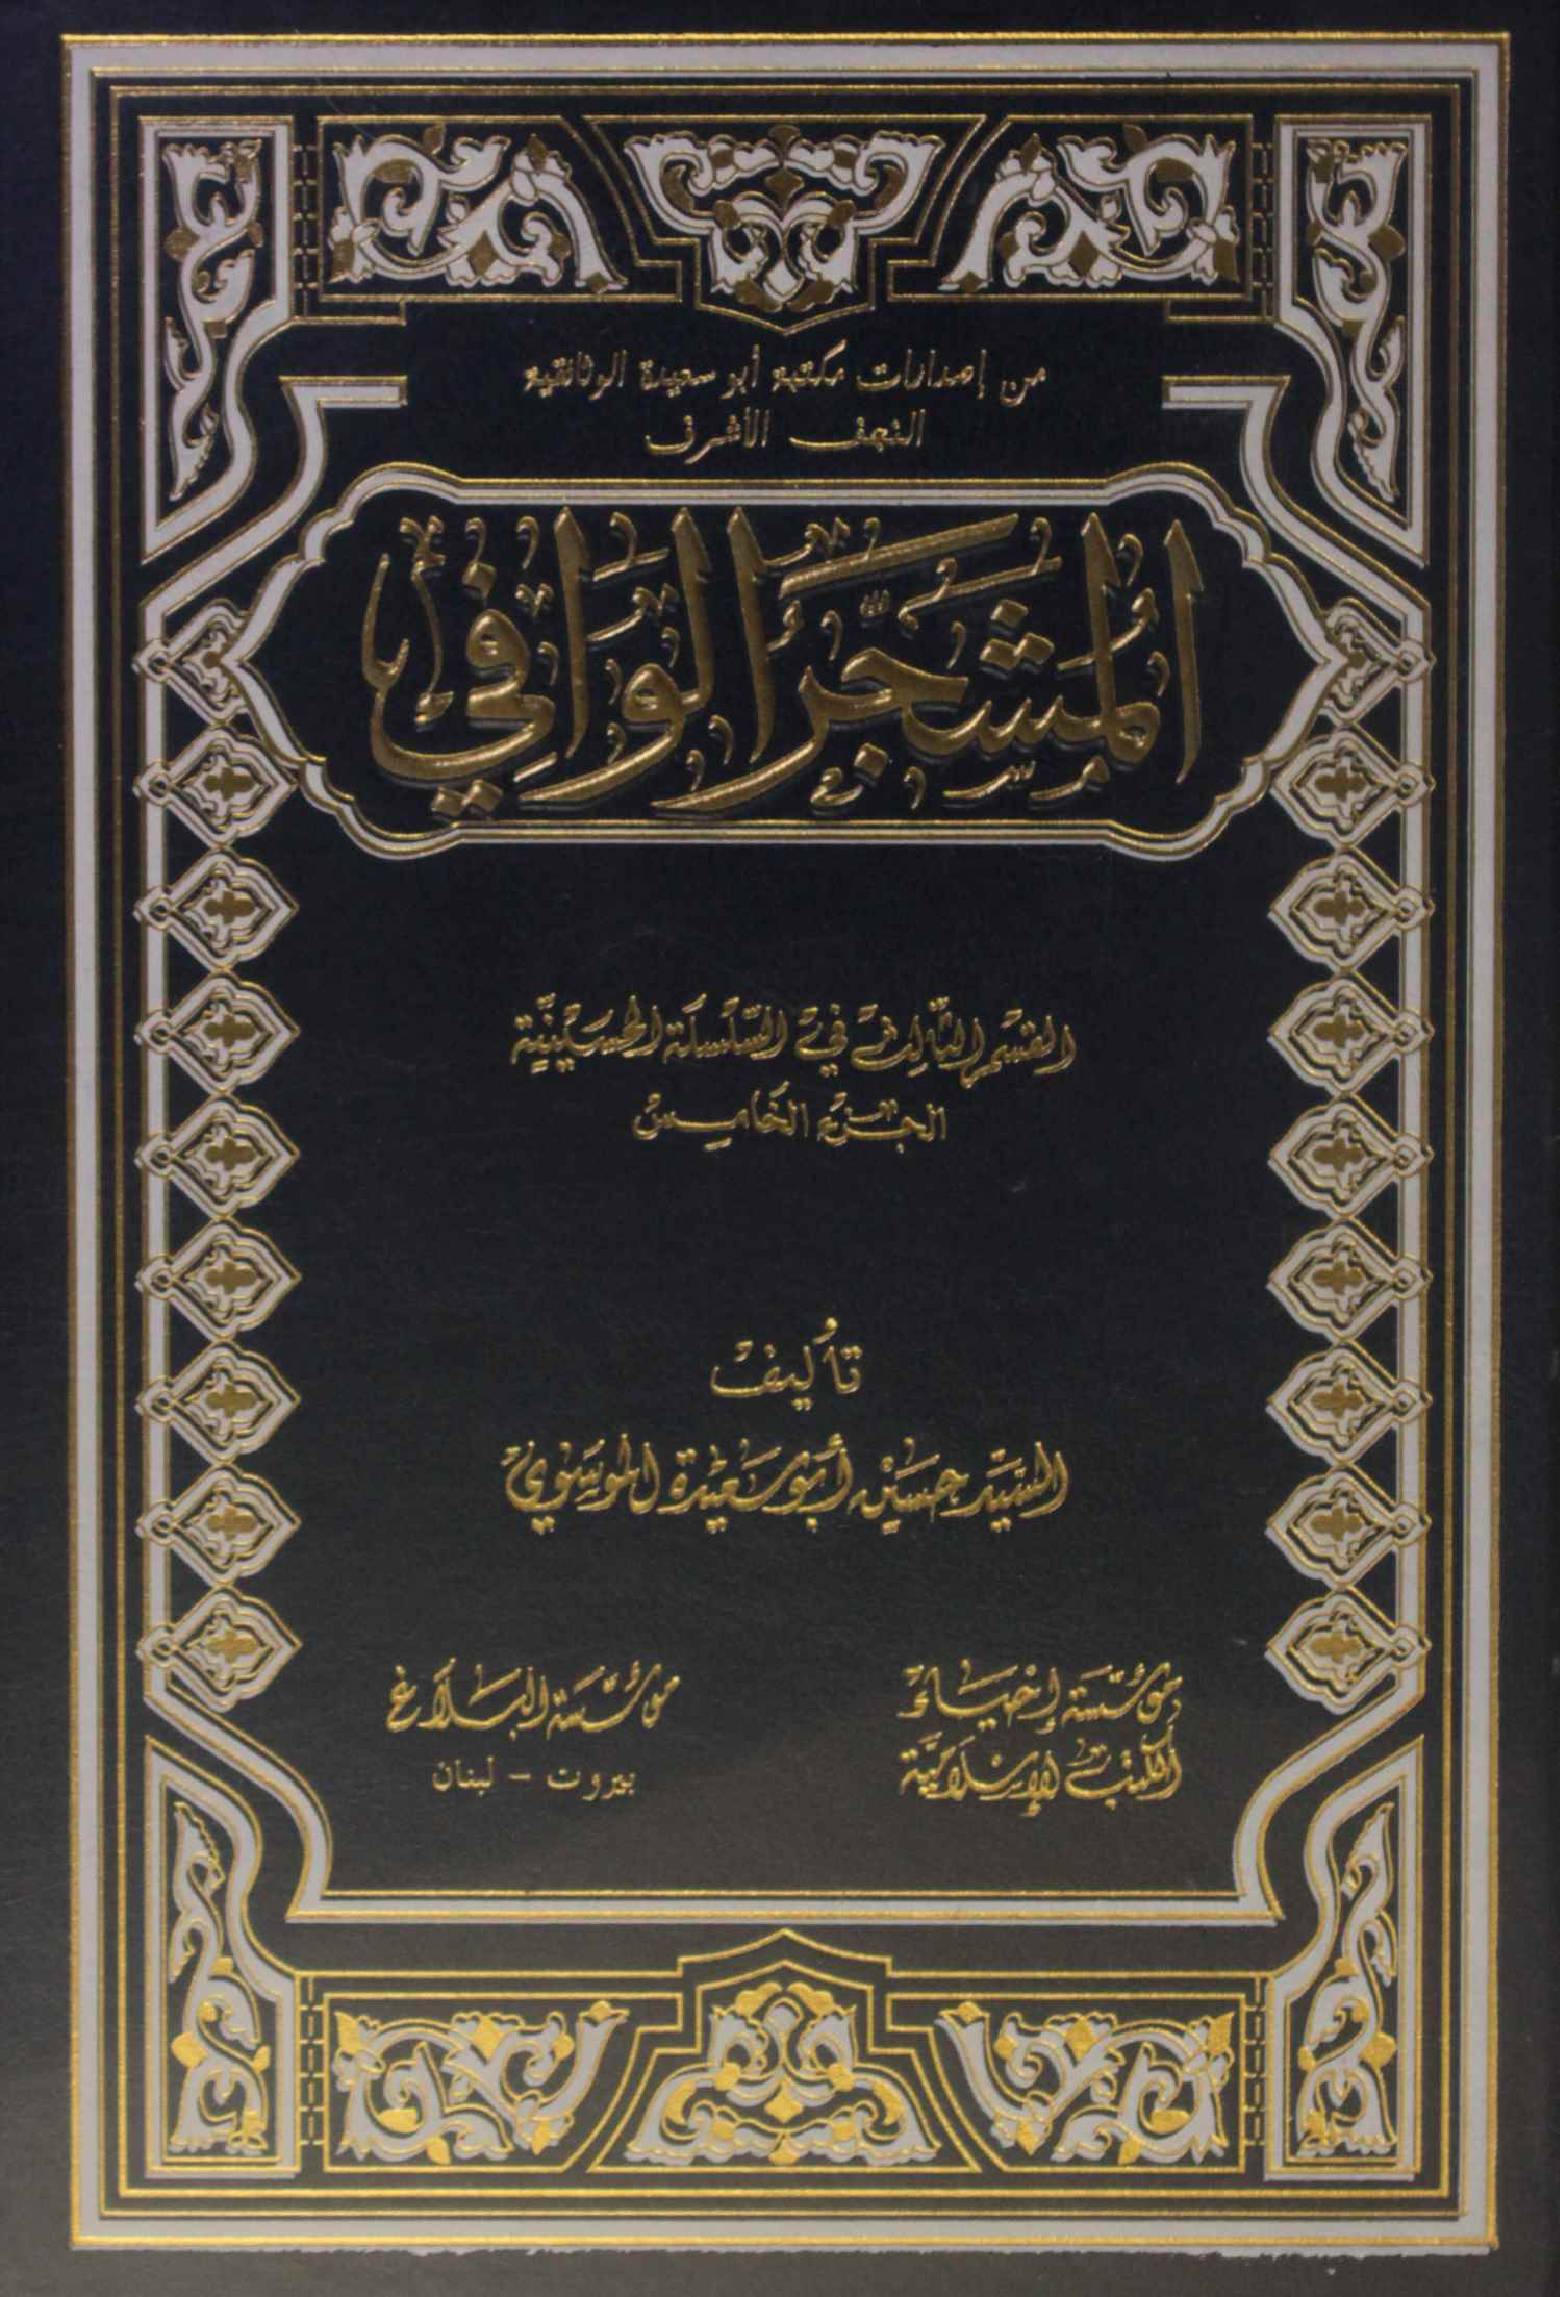 من إصدارات مكتبة أبو سعيدة الوثائقية
النجف الأشرف
المُشَجَّرُ الوَافِي
القسم الثالث في السلسلة الحسينية
الجزء الخامس
تأليف
السيد حسين أبو سعيدة الموسوي
مؤسسة إحياء
الكتب الإسلامية
مؤسسة البلاغ
بيروت - لبنان